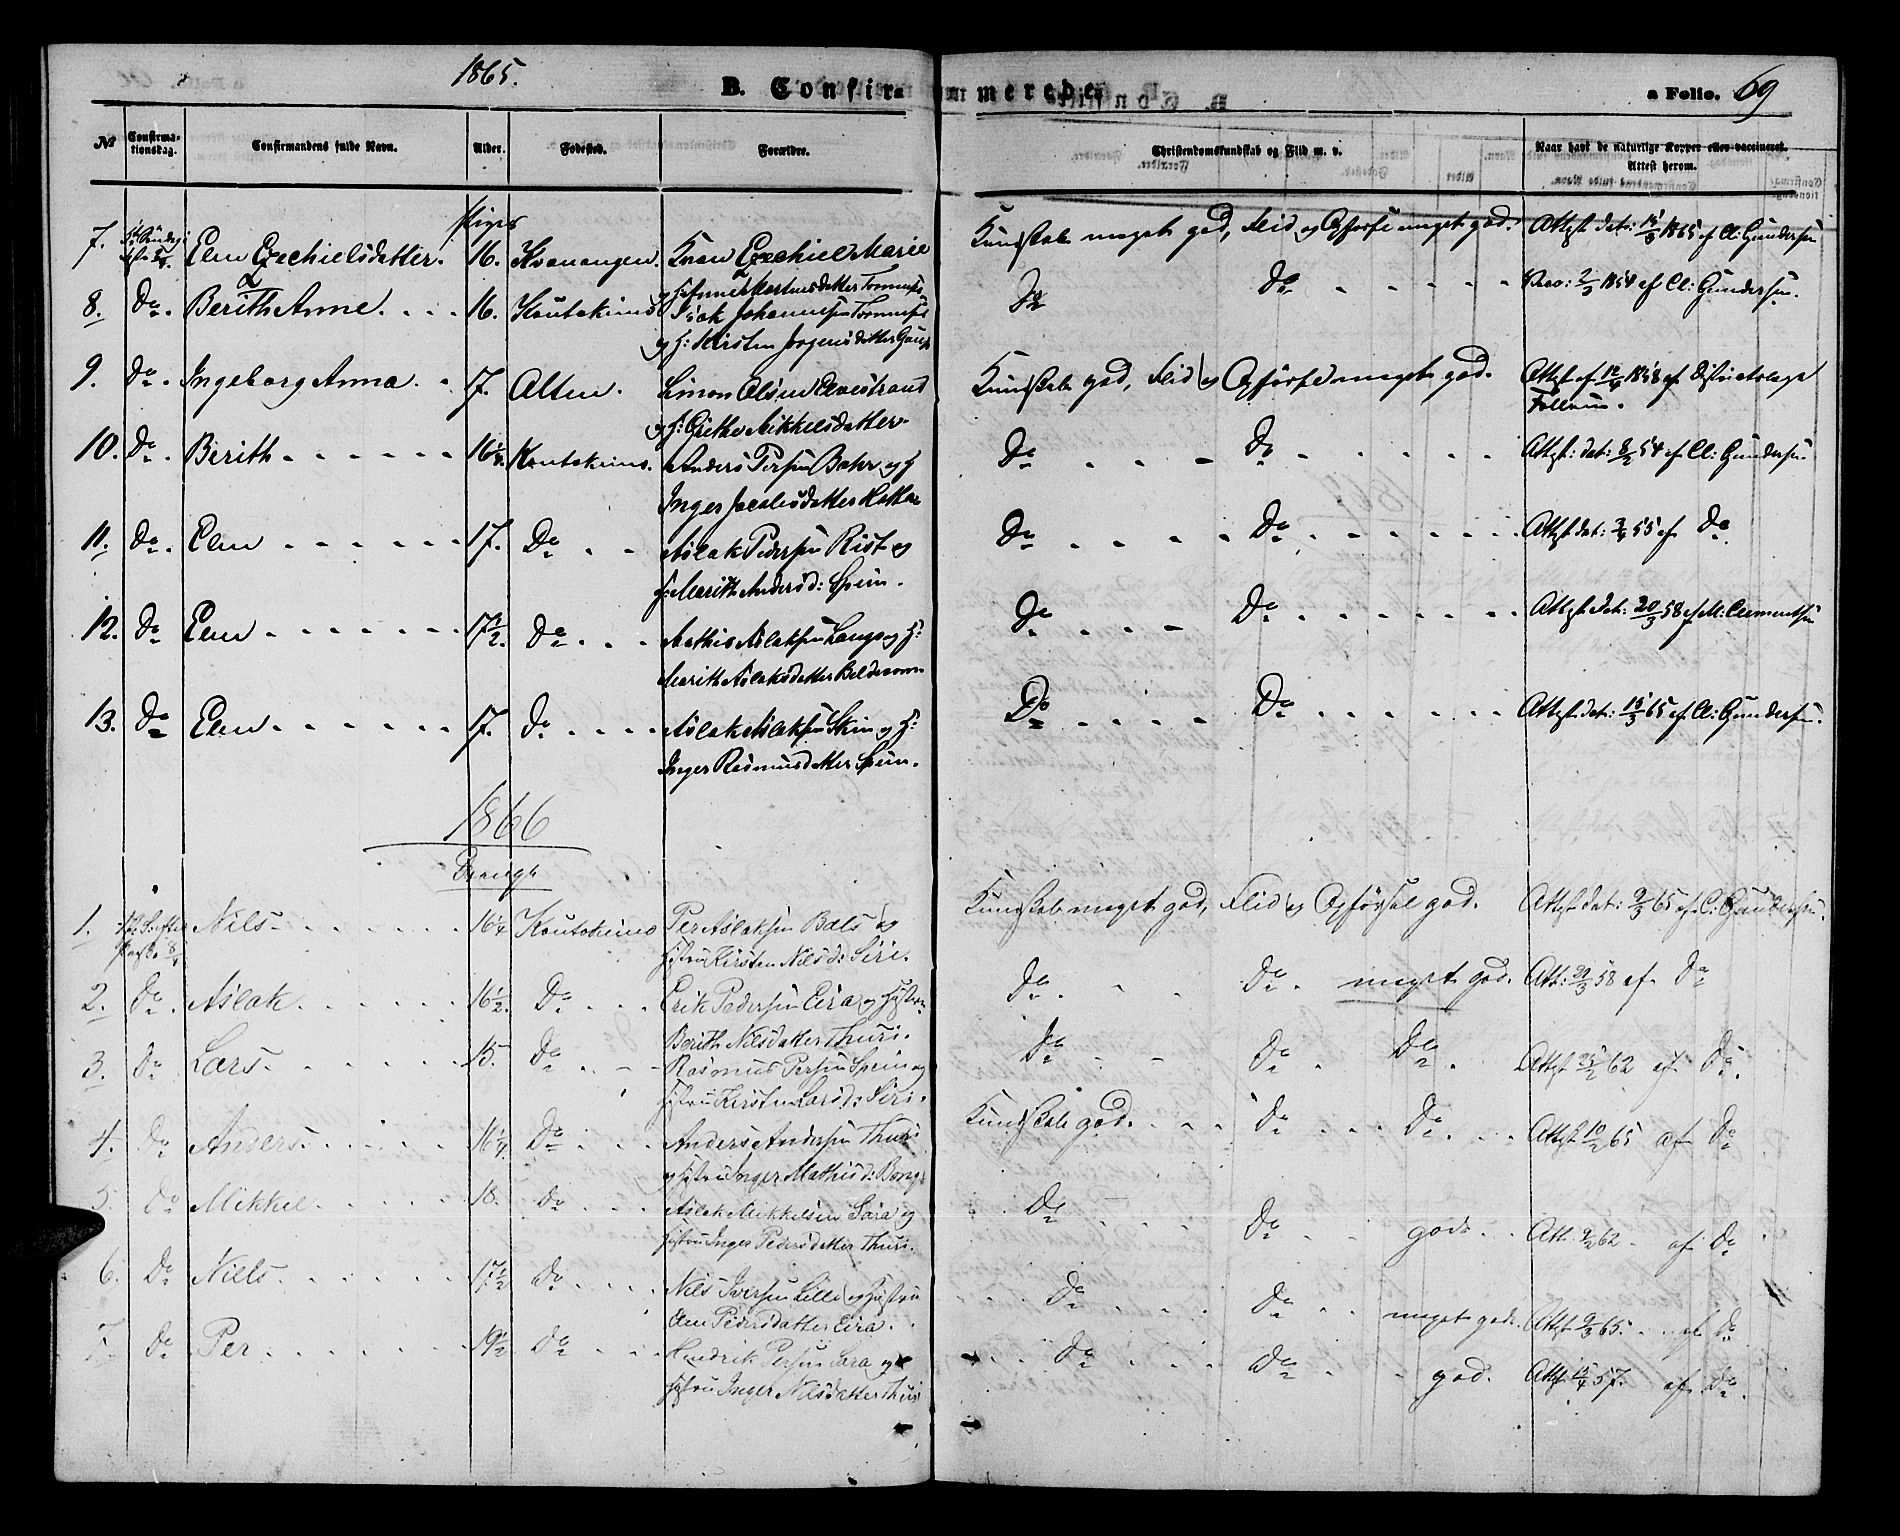 1865.
B. Confir- merede. a Folio. 69
№ Confirma-tionsdag. Confirmandens fulde Navn. Alder. Fødested. Forældre. Christendomskundskab og Flid m. v. Naar havt de naturlige Kopper eller vaccineret. Attest herom.
Piger
7. Elen Ezechielsdatter. 16. Kvænangen. Kvæn Ezechiel Marie Kundskab meget god, Flid og Opførsel meget god. Attest dat: 15/3 1865 af Cl: Gundersen
8. Do. Berith Anne. 16. Koutokeino Isak Johannesen Do Do Vacc: 2/3 1854 af Cl: Gundersen.
og H: Kirsten Jørgensdatter Gaup
9. Do. Ingeborg Anna. 17. Alten. Simon Olsen Elvestrand Kundskab god, Flid og Opførsel meget god. Attest af 12/4 1858 af Distriktslæge
og H: Grethe Mikkelsdatter. Follum.
10. Do. Berith 16½. Koutokeino. Anders Persen Bahr og H Do Do Attest: dat: 8/2 54 af Cl: Gundersen
Inger Jacobsdatter Hætta
11. Do. Elen 17. Do Aslak Pedersen Rist og Do Do Attest dat: 55 af Do
H: Marith Andersd: Spein.
12. Do Elen 17½. Do Mathis Aslaksen Langs og H: Do Do Attest dat: 20/3 58 af M. Clementsen
Marith Aslaksdatter
13. Do Elen 17. Do Aslak Aslaksen Skum og H: Do Do Attest dat: 15/3 65 af Cl: Gundersen.
Inger Rasmusdatter Spein.
1866
Drenge
1. Nils 16¼ Koutokeino Per Aslaksen Bals og Kundskab meget god, Flid og Opførsel god. Attest dat: 9/3 65 af C: Gundersen.
Paaske 8/4 Hustru Kirsten Nilsd: Siri.
2. Do. Aslak 16½. Do Erik Pedersen Eira og Hustru Do. Do. meget god. Att: 29/3 58 af Do
Berith Nilsdatter Thuri.
3. Do Lars 15. Do Rasmus Persen Spein og Do Do Do. Attest 25/2 62 af Do.
Hustru Kirsten Larsd: Siri.
4. Do Anders 16¼. Do Anders Andersen Thuri Kundskab god. Do Do. Attest 10/2 65 af Do
og Hustru Inger Mathisd: Bongo
5. Do Mikkel. 18. Do Aslak Mikkelsen Sara og Do Do god. Att: 9/2 62. af Do
Hustru Inger Pedersdatter Thuri.
6. Do Niels. 17½ Do Nils Iversen Lille og Hustru Do Do meget god. Attest 9/3 65. af Do
Elen Pedersdatter Eira.
7. Do Per 19½ Do Hendrik Persen Sara og Do Do god. Attest 15/4 57. af Do.
Hustru Inger Nilsdatter Thuri